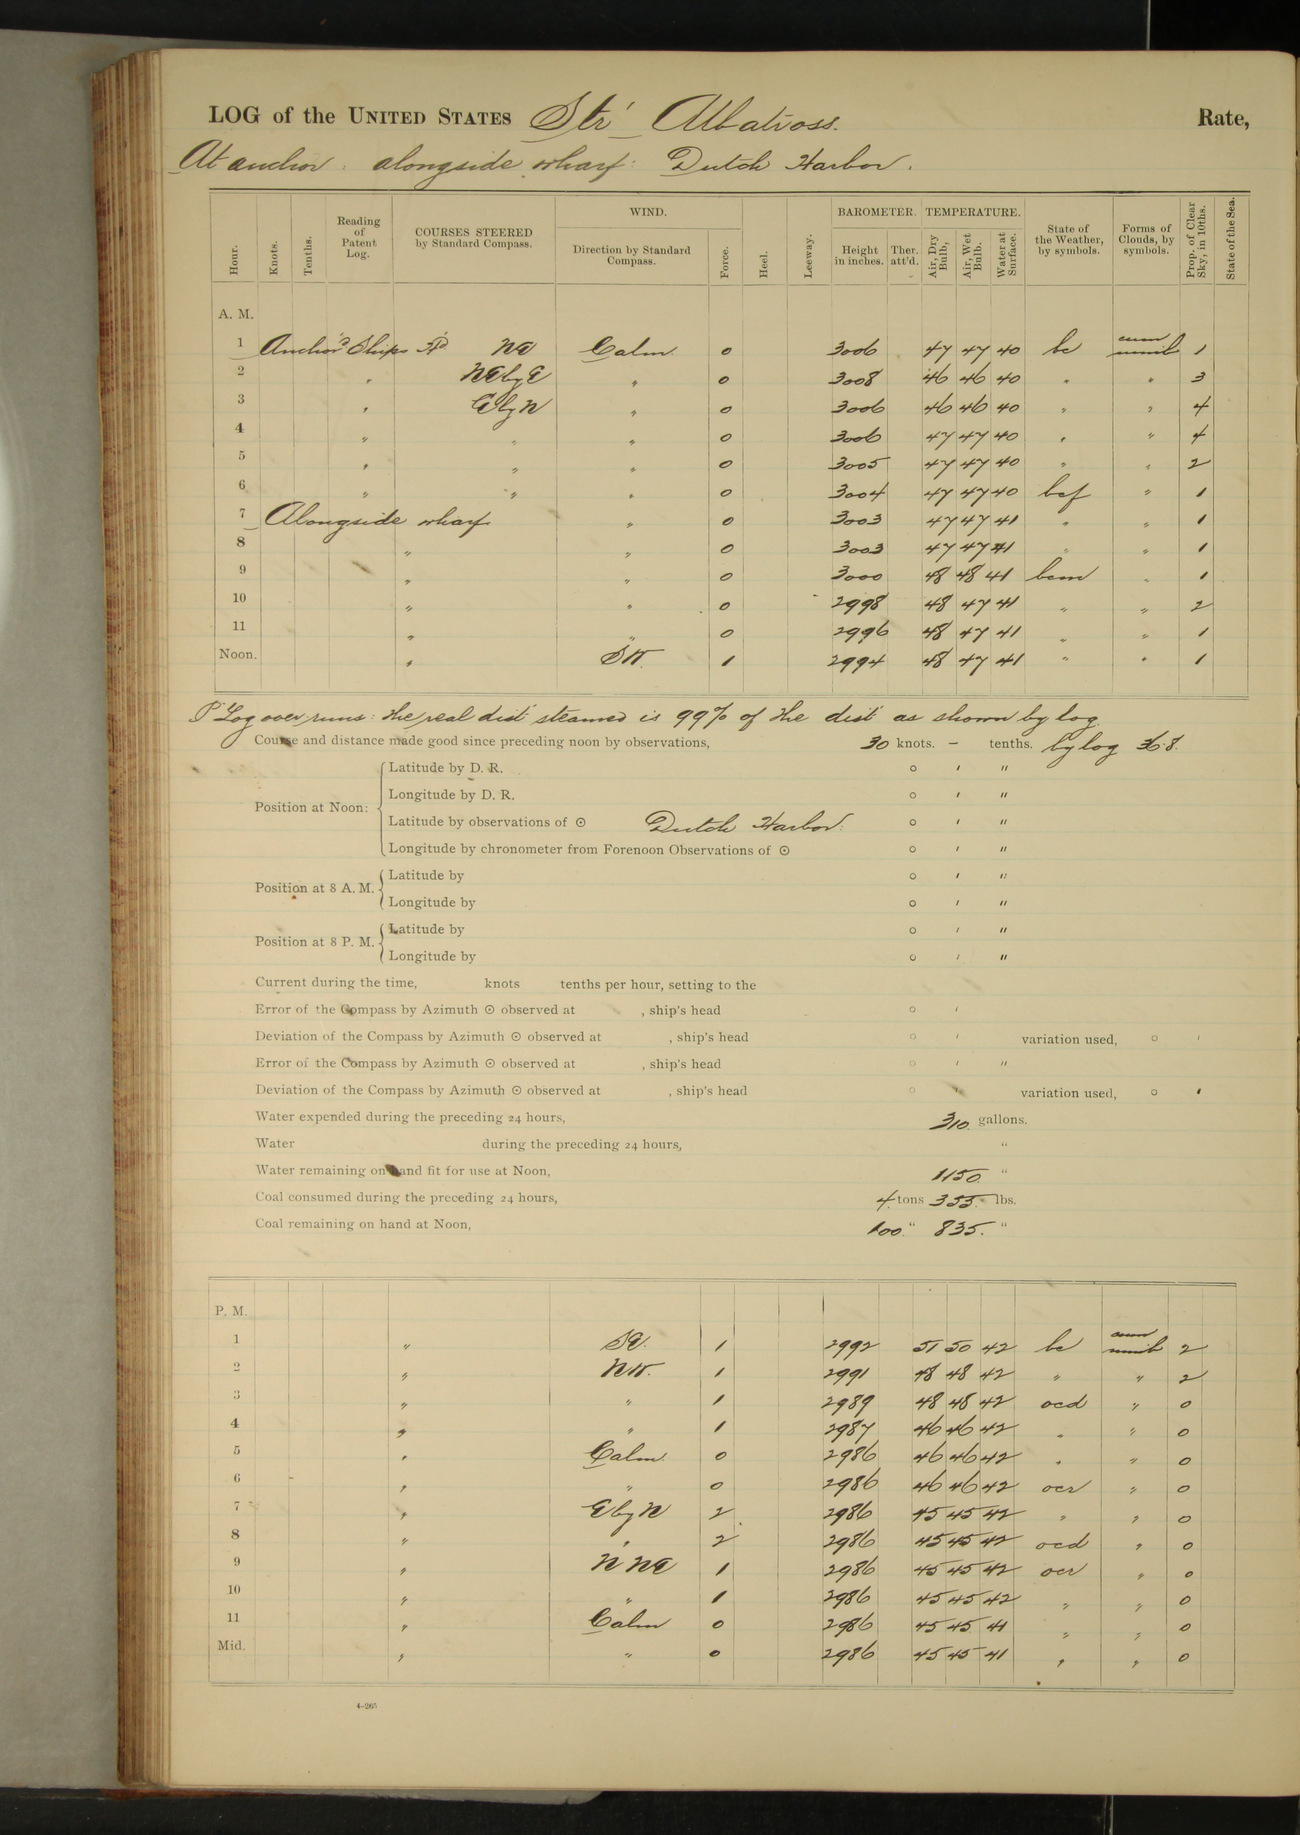 LOG of the UNITED STATES Str Albatross. Rate,
At anchor: alongside wharf: Dutch Harbor.
Hour. Knots. Tenths. Reading of Patent Log. COURSES STEERED by Standard Compass. WIND. Direction by Standard Compass. Force. Heel. Leeway. BAROMETER. Height in inches. Ther. att'd. TEMPERATURE. Air, Dry Bulb, Air, Wet Bulb. Water at Surface. State of the Weather, by symbols. Forms of Clouds, by symbols. Prop. of Clear Sky, in 10ths. State of the Sea.
A. M.
1 Anchor'd Ships H'd NE Calm 0 3006 47 47 40 bc cum nimb 1
2 " NE by E " 0 3008 46 46 40 " " 3
3 " E by N " 0 3006 46 46 40 " " 4
4 " " " 0 3006 47 47 40 " " 4
5 " " " 0 3005 47 47 40 " " 2
6 " " " 0 3004 47 47 40 bcf " 1
7 Alongside wharf " 0 3003 47 47 41 " " 1
8 " " 0 3003 47 47 41 " " 1
9 " " 0 3000 48 48 41 bcm " 1
10 " " 0 2998 48 47 41 " " 2
11 " " 0 2996 48 47 41 " " 1
Noon. " SW. 1 2994 48 47 41 " " 1
P Log over runs: the real dist steamed is 99% of the dist as shown by log.
Course and distance made good since preceding noon by observations, 30 knots. – tenths. by log 36.8.
Position at Noon: Latitude by D. R. ° ′ ″
Longitude by D. R. ° ′ ″
Latitude by observations of ☉ Dutch Harbor. ° ′ ″
Longitude by chronometer from Forenoon Observations of ☉ ° ′ ″
Position at 8 A. M. Latitude by ° ′ ″
Longitude by ° ′ ″
Position at 8 P. M. Latitude by ° ′ ″
Longitude by ° ′ ″
Current during the time, knots tenths per hour, setting to the
Error of the Compass by Azimuth ☉ observed at , ship's head ° ′
Deviation of the Compass by Azimuth ☉ observed at , ship's head ° ′ variation used, ° ′
Error of the Compass by Azimuth ☉ observed at , ship's head ° ′ ″
Deviation of the Compass by Azimuth ☉ observed at , ship's head ° ′ variation used, ° ′
Water expended during the preceding 24 hours, 310 gallons.
Water during the preceding 24 hours, "
Water remaining on hand fit for use at Noon, 1150 "
Coal consumed during the preceding 24 hours, 4 tons 355 lbs.
Coal remaining on hand at Noon, 100 " 835. "
P. M.
1 " SE. 1 2992 51 50 42 bc cum nimb 2
2 " NW. 1 2991 48 48 42 " " 2
3 " " 1 2989 48 48 42 ocd " 0
4 " " 1 2987 46 46 42 " " 0
5 " Calm 0 2986 46 46 42 " " 0
6 " " 0 2986 46 46 42 ocr " 0
7 " E by N 2 2986 45 45 42 " " 0
8 " " 2 2986 45 45 42 ocd " 0
9 " N NE 1 2986 45 45 42 ocr " 0
10 " " 1 2986 45 45 42 " " 0
11 " Calm 0 2986 45 45 41 " " 0
Mid. " " 0 2986 45 45 41 " " 0
4-265